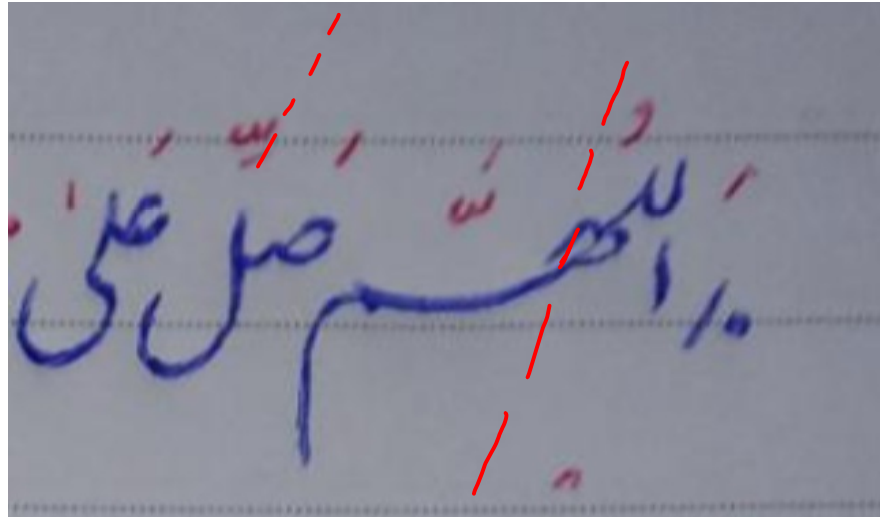 اَللهُمَّ صَلِّ عَلىٰ